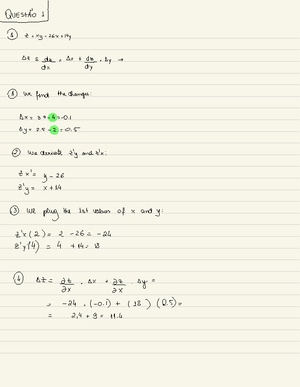 QUESTÃO 1
① z = xy - 26x + 14y
Δz ≅ dz/dx · Δx + dz/dy · Δy →
① We find the changes:
Δx = 3.9 - 4 = -0.1
Δy = 2.5 - 2 = 0.5
② We derivate z'y and z'x:
z x' = y - 26
z'y = x + 14
③ We plug the 1st values of x and y:
z'x (2) = 2 - 26 = -24
z'y (4) = 4 + 14 = 18
④ Δz = ∂z/∂x · Δx + ∂z/∂x Δy =
= -24 · (-0.1) + (18) (0.5) =
= 2.4 + 9 = 11.4